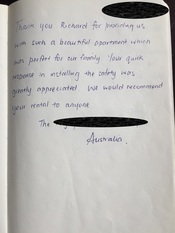 Thank you Richard for providing us
with such a beautiful apartment which
was perfect for our family. Your quick
response in installing the safety was
greatly appreciated. We would recommend
your rental to anyone.
The
Australia.